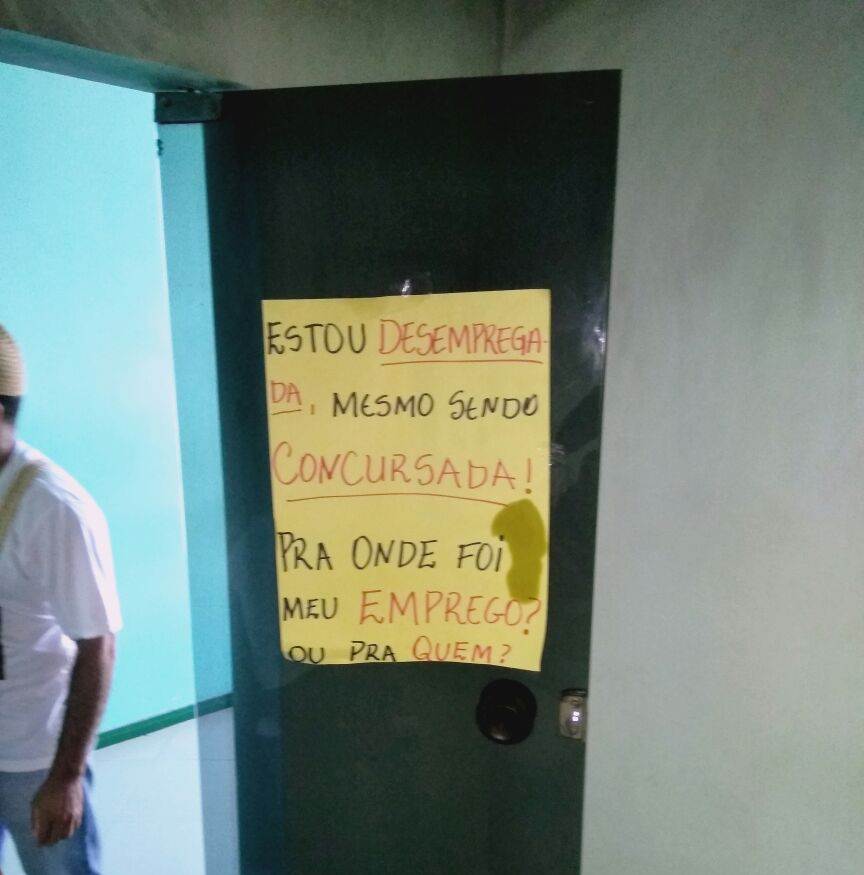 ESTOU DESEMPREGA-
DA, MESMO SENDO
CONCURSADA!
PRA ONDE FOI
MEU EMPREGO?
OU PRA QUEM?